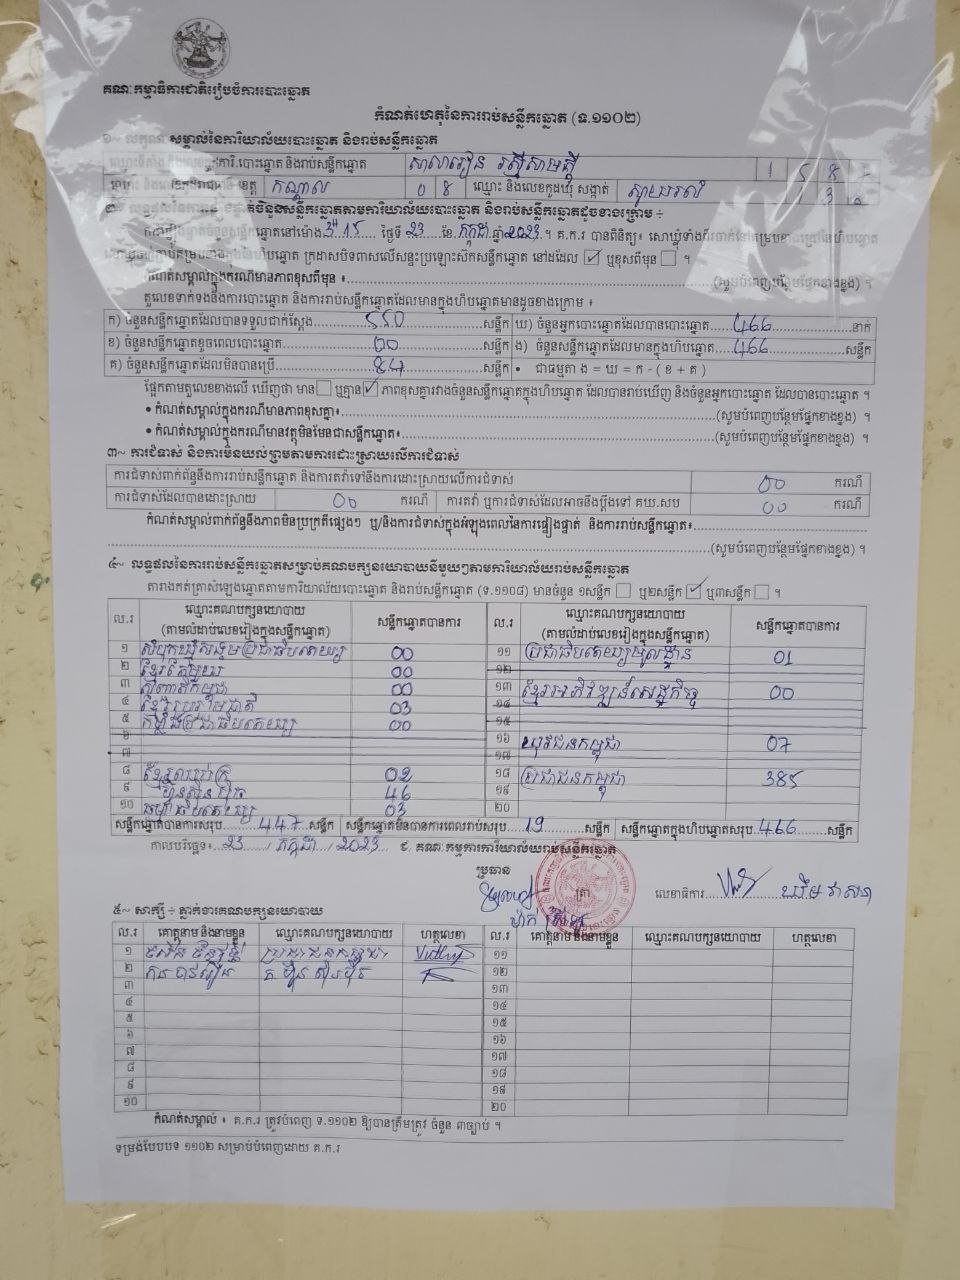 គណៈកម្មាធិការជាតិរៀបចំការបោះឆ្នោត
កំណត់ហេតុនៃការរាប់សន្លឹកឆ្នោត (ទ.១១០២)
សម្គាល់នៃការិយាល័យបោះឆ្នោត និងរាប់សន្លឹកឆ្នោត
បោះឆ្នោត និងរាប់សន្លឹកឆ្នោត សាលារៀន
ខេត្ត កណ្តាល 0 8 ឈ្មោះ និងលេខកូដឃុំ សង្កាត់
ចំនួនសន្លឹកឆ្នោតតាមការិយាល័យបោះឆ្នោត និងរាប់សន្លឹកឆ្នោតដូចខាងក្រោម ÷
ចំនួនសន្លឹកឆ្នោតនៅម៉ោង 3:15 ថ្ងៃទី 23 ខែ កក្កដា ឆ្នាំ 2023 ។ គ.ក.រ បានពិនិត្យ៖
ក្រដាសបិទពាសលើសន្ទះប្រឡោះស៊កសន្លឹកឆ្នោត នៅដដែល ✓ ឬខុសពីមុន ។
កំណត់សម្គាល់ក្នុងករណីមានភាពខុសពីមុន ៖ (សូមបំពេញបន្ថែមផ្នែកខាងខ្នង) ។
តួលេខទាក់ទងនឹងការបោះឆ្នោត និងការរាប់សន្លឹកឆ្នោតដែលមានក្នុងហិបឆ្នោតមានដូចខាងក្រោម ៖
ក) ចំនួនសន្លឹកឆ្នោតដែលបានទទួលជាក់ស្តែង 550 សន្លឹក ឃ) ចំនួនអ្នកបោះឆ្នោតដែលបានបោះឆ្នោត 466 នាក់
ខ) ចំនួនសន្លឹកឆ្នោតខូចពេលបោះឆ្នោត 00 សន្លឹក ង) ចំនួនសន្លឹកឆ្នោតដែលមានក្នុងហិបឆ្នោត 466 សន្លឹក
គ) ចំនួនសន្លឹកឆ្នោតដែលមិនបានប្រើ 84 សន្លឹក • ជាធម្មតា ង = ឃ = ក - ( ខ + គ )
ផ្អែកតាមតួលេខខាងលើ ឃើញថា មាន ឬគ្មាន ✓ ភាពខុសគ្នារវាងចំនួនសន្លឹកឆ្នោតក្នុងហិបឆ្នោត ដែលបានរាប់ឃើញ និងចំនួនអ្នកបោះឆ្នោត ដែលបានបោះឆ្នោត ។
• កំណត់សម្គាល់ក្នុងករណីមានភាពខុសគ្នា៖ (សូមបំពេញបន្ថែមផ្នែកខាងខ្នង) ។
• កំណត់សម្គាល់ក្នុងករណីមានវត្ថុមិនមែនជាសន្លឹកឆ្នោត៖ (សូមបំពេញបន្ថែមផ្នែកខាងខ្នង) ។
៣~ ការជំទាស់ និងការមិនយល់ព្រមតាមការដោះស្រាយលើការជំទាស់
ការជំទាស់ពាក់ព័ន្ធនឹងការរាប់សន្លឹកឆ្នោត និងការតវ៉ាទៅនឹងការដោះស្រាយលើការជំទាស់ 00 ករណី
ការជំទាស់ដែលបានដោះស្រាយ 00 ករណី ការតវ៉ា ឬការជំទាស់ដែលអាចនឹងប្តឹងទៅ គឃ.សប 00 ករណី
កំណត់សម្គាល់ពាក់ព័ន្ធនឹងភាពមិនប្រក្រតីផ្សេងៗ ឬ/និងការជំទាស់ក្នុងអំឡុងពេលនៃការផ្ទៀងផ្ទាត់ និងការរាប់សន្លឹកឆ្នោត៖
(សូមបំពេញបន្ថែមផ្នែកខាងខ្នង) ។
៤~ លទ្ធផលនៃការរាប់សន្លឹកឆ្នោតសម្រាប់គណបក្សនយោបាយនីមួយៗតាមការិយាល័យរាប់សន្លឹកឆ្នោត
តារាងកត់ត្រាសំឡេងឆ្នោតតាមការិយាល័យបោះឆ្នោត និងរាប់សន្លឹកឆ្នោត (ទ.១១០៨) មានចំនួន ១សន្លឹក ឬ២សន្លឹក ✓ ឬ៣សន្លឹក ។
ល.រ ឈ្មោះគណបក្សនយោបាយ (តាមលំដាប់លេខរៀងក្នុងសន្លឹកឆ្នោត) សន្លឹកឆ្នោតបានការ ល.រ ឈ្មោះគណបក្សនយោបាយ (តាមលំដាប់លេខរៀងក្នុងសន្លឹកឆ្នោត) សន្លឹកឆ្នោតបានការ
១ សំបុកឃ្មុំសង្គមប្រជាធិបតេយ្យ 00 ១១ ប្រជាធិបតេយ្យមូលដ្ឋាន 01
២ ខ្មែរតែមួយ 00 ១២
៣ កម្ពុជា 00 ១៣ ខ្មែរអភិវឌ្ឍន៍សេដ្ឋកិច្ច 00
៤ ខ្មែររួបរួមជាតិ 03 ១៤
៥ កម្លាំងប្រជាធិបតេយ្យ 00 ១៥
៦ ១៦ យុវជនកម្ពុជា 07
៧ ១៧
៨ ខ្មែរ 02 ១៨ ប្រជាជនកម្ពុជា 385
៩ ហ្វ៊ុនស៊ិនប៉ិច 46 ១៩
១០ ធម្មាធិបតេយ្យ 03 ២០
សន្លឹកឆ្នោតបានការសរុប 447 សន្លឹក សន្លឹកឆ្នោតមិនបានការពេលរាប់សរុប 19 សន្លឹក សន្លឹកឆ្នោតក្នុងហិបឆ្នោតសរុប 466 សន្លឹក
កាលបរិច្ឆេទ៖ 23 / កក្កដា / 2023 ជ. គណៈកម្មការការិយាល័យរាប់សន្លឹកឆ្នោត
ប្រធាន
ត្រា លេខាធិការ
៥~ សាក្សី ÷ ភ្នាក់ងារគណបក្សនយោបាយ
ល.រ គោត្តនាម និងនាមខ្លួន ឈ្មោះគណបក្សនយោបាយ ហត្ថលេខា ល.រ គោត្តនាម និងនាមខ្លួន ឈ្មោះគណបក្សនយោបាយ ហត្ថលេខា
១ ប្រជាជនកម្ពុជា ១១
២ គ. ហ្វ៊ុនស៊ិនប៉ិច ១២
៣ ១៣
៤ ១៤
៥ ១៥
៦ ១៦
៧ ១៧
៨ ១៨
៩ ១៩
១០ ២០
កំណត់សម្គាល់ ៖ គ.ក.រ ត្រូវបំពេញ ទ.១១០២ ឱ្យបានត្រឹមត្រូវ ចំនួន ៣ច្បាប់ ។
ទម្រង់បែបបទ ១១០២ សម្រាប់បំពេញដោយ គ.ក.រ